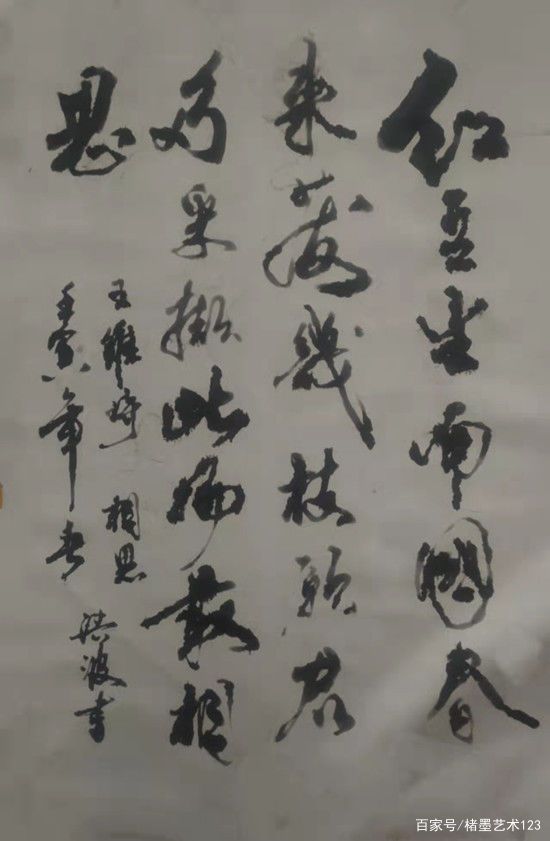 红豆生南國春
来發幾枝願君
多采撷此物最相
思
王維诗 相思
壬寅年春 洪波书
百家号/楮墨艺术123